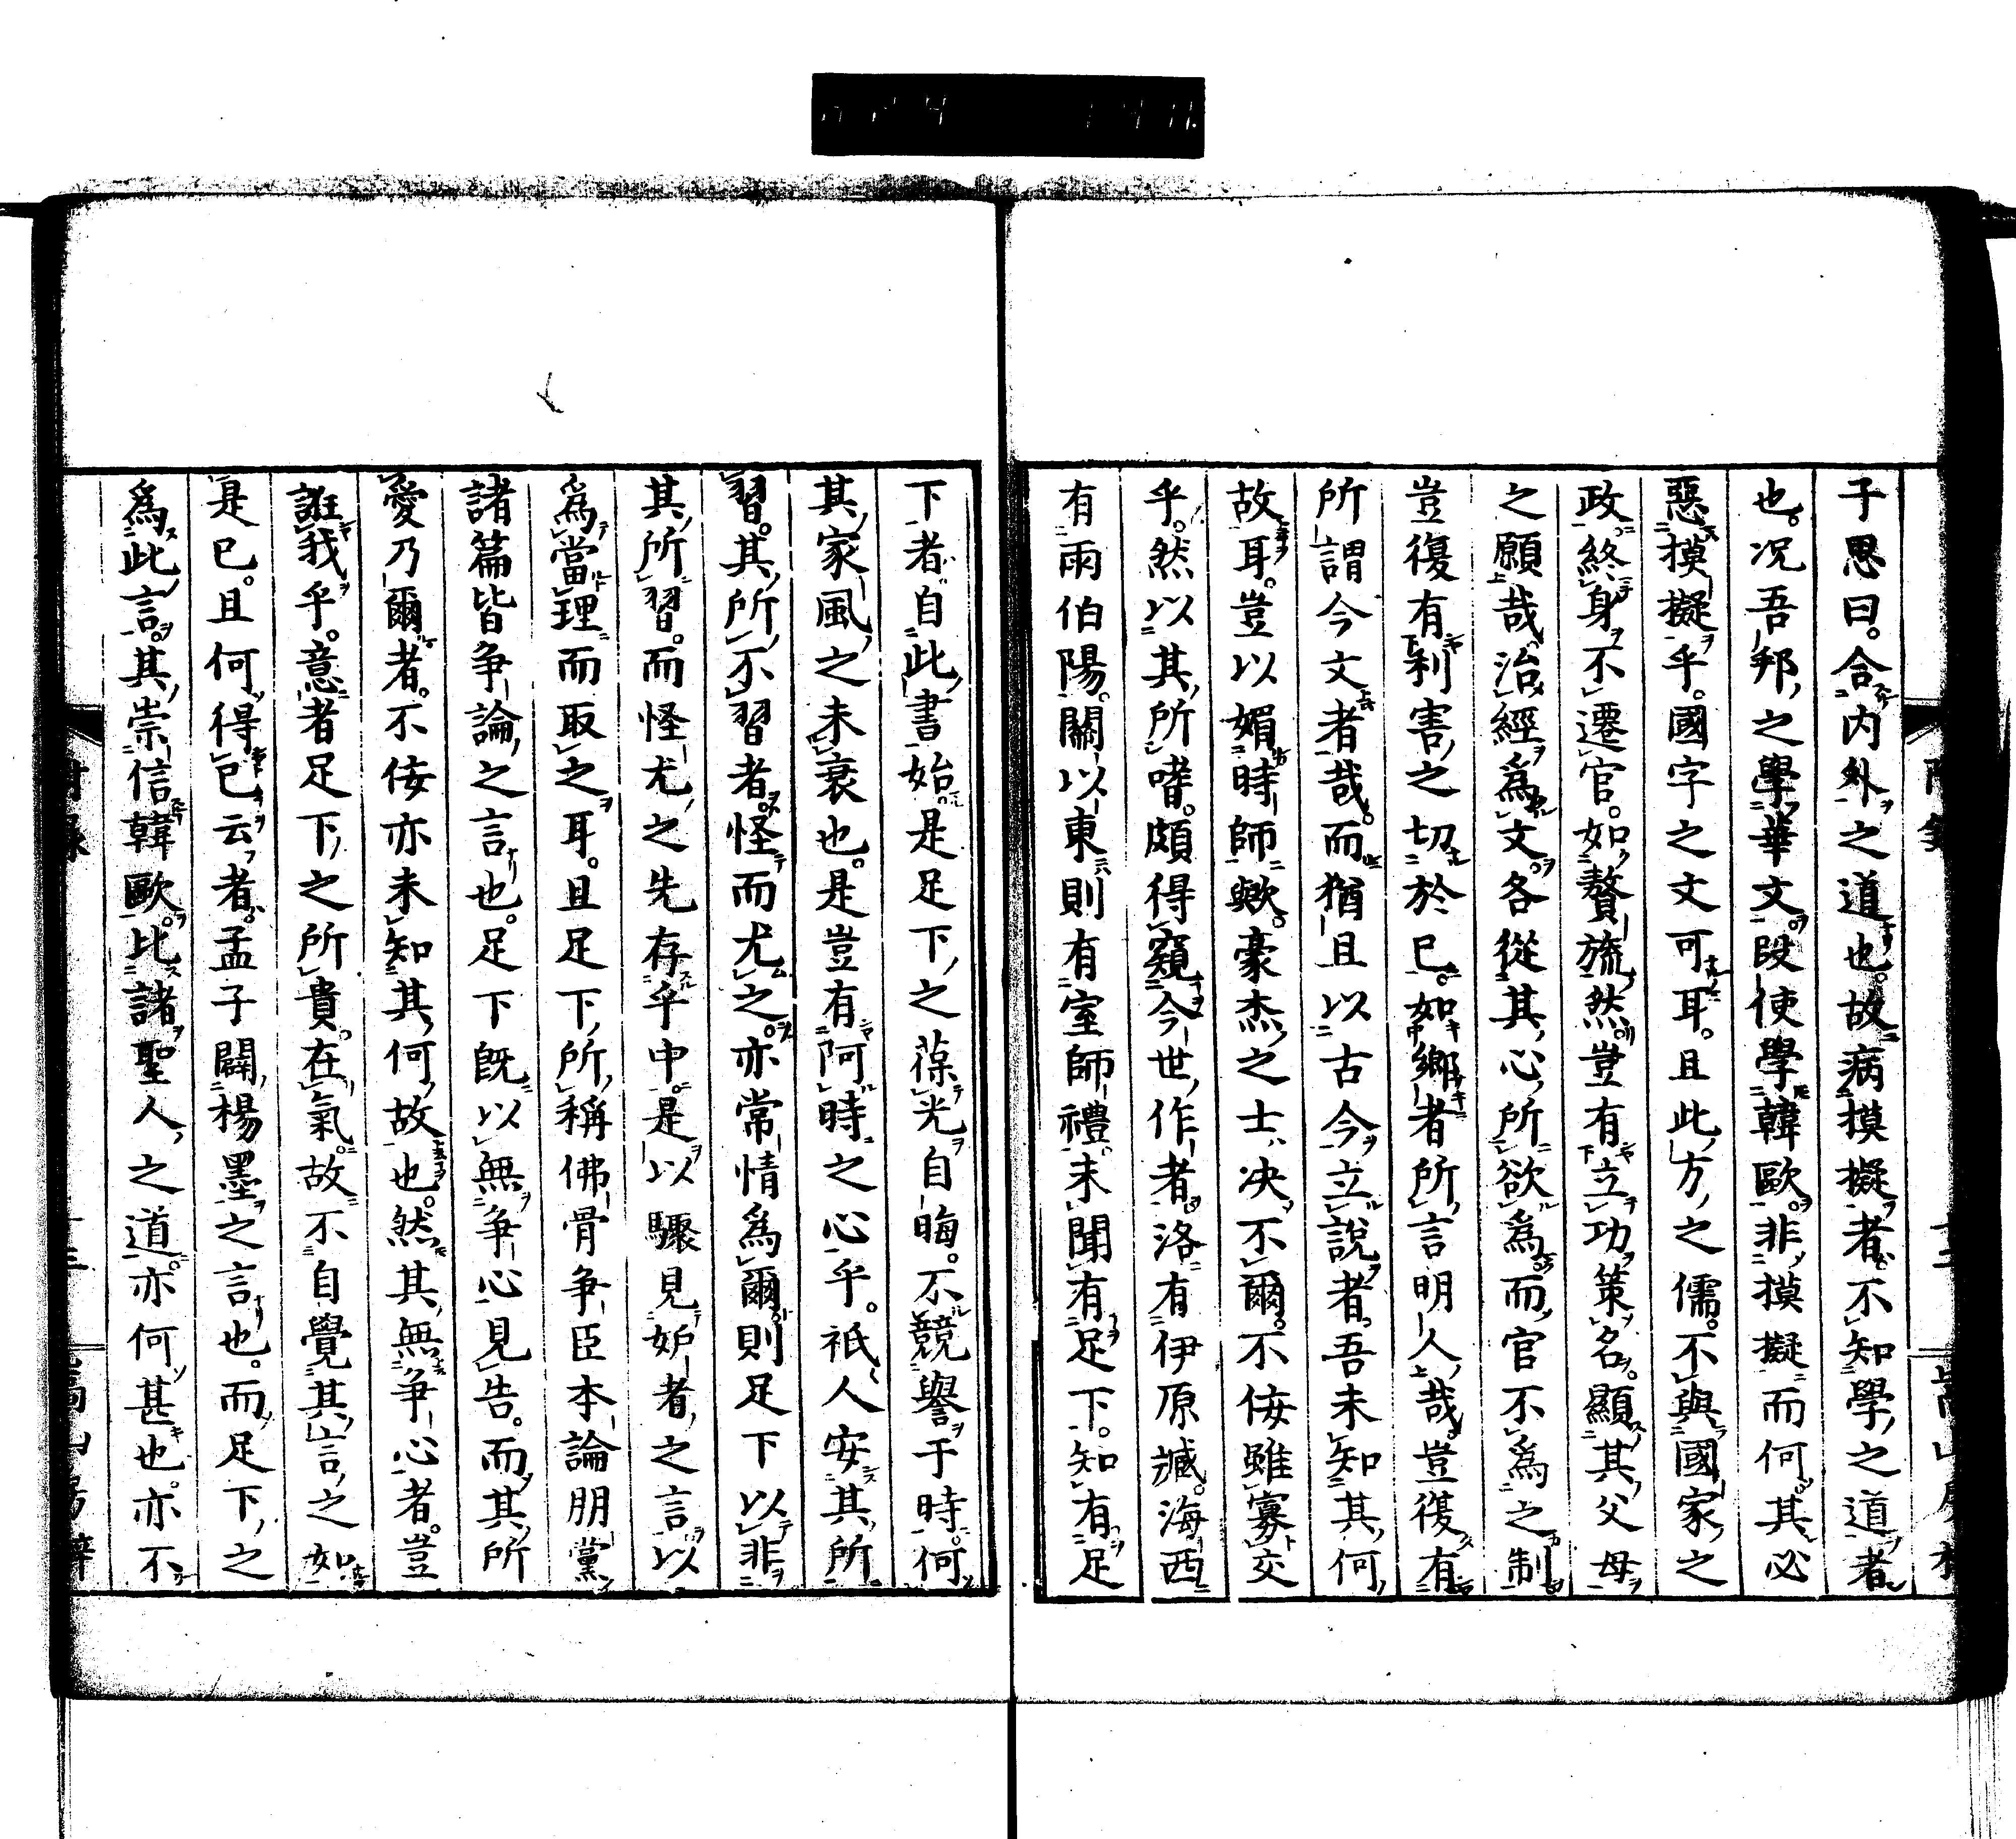 子思曰。合内外之道也。故病摸擬者。不知學之道者
也。况吾邦之學華文。段使學韓歐。非摸擬而何。其必
惡摸擬乎。國字之文可耳。且此方之儒。不與國家之
政。終身不遷官。如贅旒然。豈有立功策名。顯其父母
之願哉。治經爲文。各從其心所欲爲。而官不爲之制。
豈復有利害之切於已。如鄉者所言明人哉。豈復有
所謂今文者哉。而猶且以古今立説者。吾未知其何
故耳。豈以媚時師歟。豪杰之士。决不爾。不佞雖寡交
乎。然以其所嗜。頗得窺今世作者。洛有伊原臧。海西
有雨伯陽。關以東則有室師禮。未聞有足下。知有足
下者。自此書始。是足下之葆光自晦。不競譽于時。何
其家風之未衰也。是豈有阿時之心乎。祇人安其所
習。其所不習者。怪而尤之。亦常情爲爾。則足下以非
其所習。而怪尤之先存乎中。是以驟見妒者之言。以
爲當理而取之耳。且足下所稱佛骨爭臣本論朋黨
諸篇皆争論之言也。足下既以無爭心見告。而其所
愛乃爾者。不佞亦未知其何故也。然其無爭心者。豈
誑我乎。意者足下之所貴。在氣。故不自覺其言之如
是已。且何得已云者。孟子闢楊墨之言也。而足下之
爲此言。其崇信韓歐。比諸聖人之道。亦何甚也。亦不